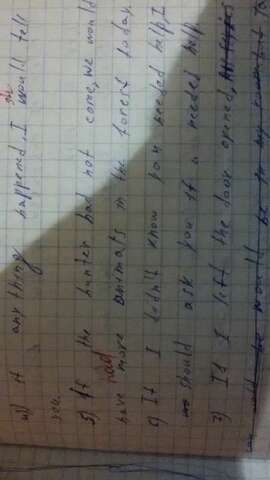 4) If any thing happened I would tell
you.
5) If the hunter had not come, we would
have had more animals in the forest today.
6) If I didn't know you needed help, I
should ask you if u needed help
7) If I left the door opened,